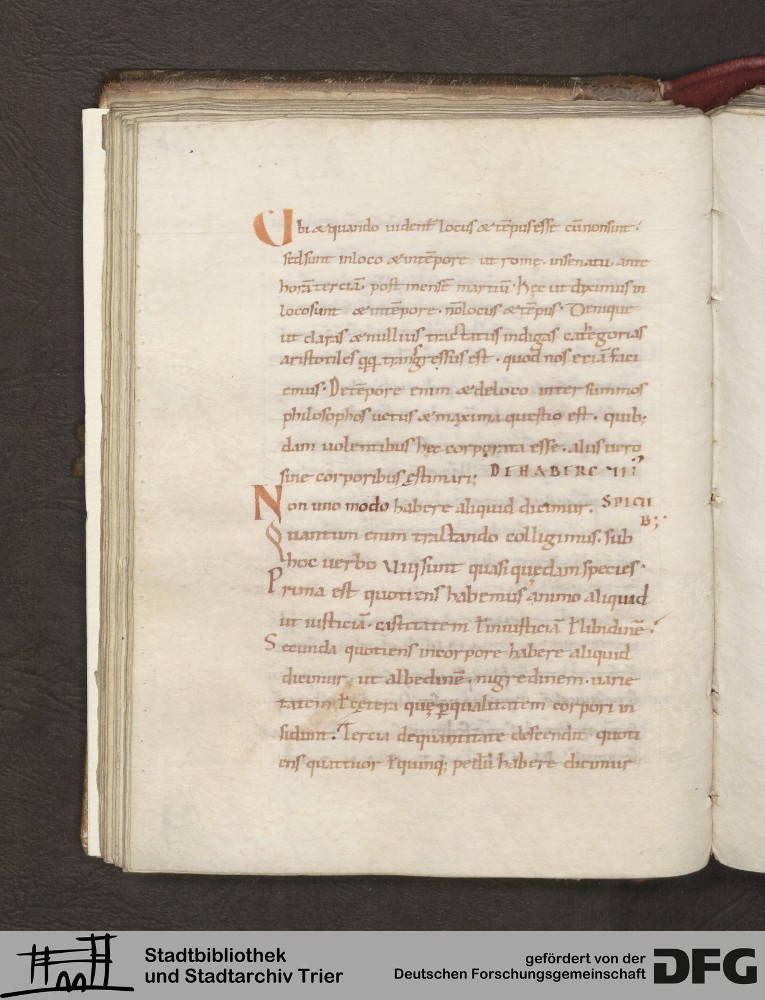 Ubi & quando uident̄ locus & tēpus esse cū non sint.
sed sunt in loco & in tēpore ut romę. in senatu. ante
horā terciā. post mensē martiū. Hęc ut diximus in
loco sunt & in tēpore. nō locus & tēpus. Denique
ut claras & nullius tractatus indigas categorias
aristotiles q̨q; transgressus est. quod nos etiā faci
emus. De tēpore enim & de loco inter summos
philosophos uetus & maxima questio est. quib;
dam uolentibus hęc corporata esse. aliis uero
sine corporibus ęstimari; DE HABERE VIII
Non uno modo habere aliquid dicimur. SPECIE
B;
Quantum enim tractando colligimus. sub
hoc uerbo VIII sunt quasi quędam species.
Prima est quotiens habemus animo aliquid
ut iusticiā. castitatem ł iniusticiā ł libidinē.
Secunda quotiens in corpore habere aliquid
dicimur. ut albedinē. nigredinem. uarie
tatem ł cętera quę ꝑ qualitatem corpori in
sidunt. Tercia de quantitate descendit quoti
ens quattuor ł quinq; pedū habere dicimur
Stadtbibliothek
und Stadtarchiv Trier
gefördert von der
Deutschen Forschungsgemeinschaft
DFG